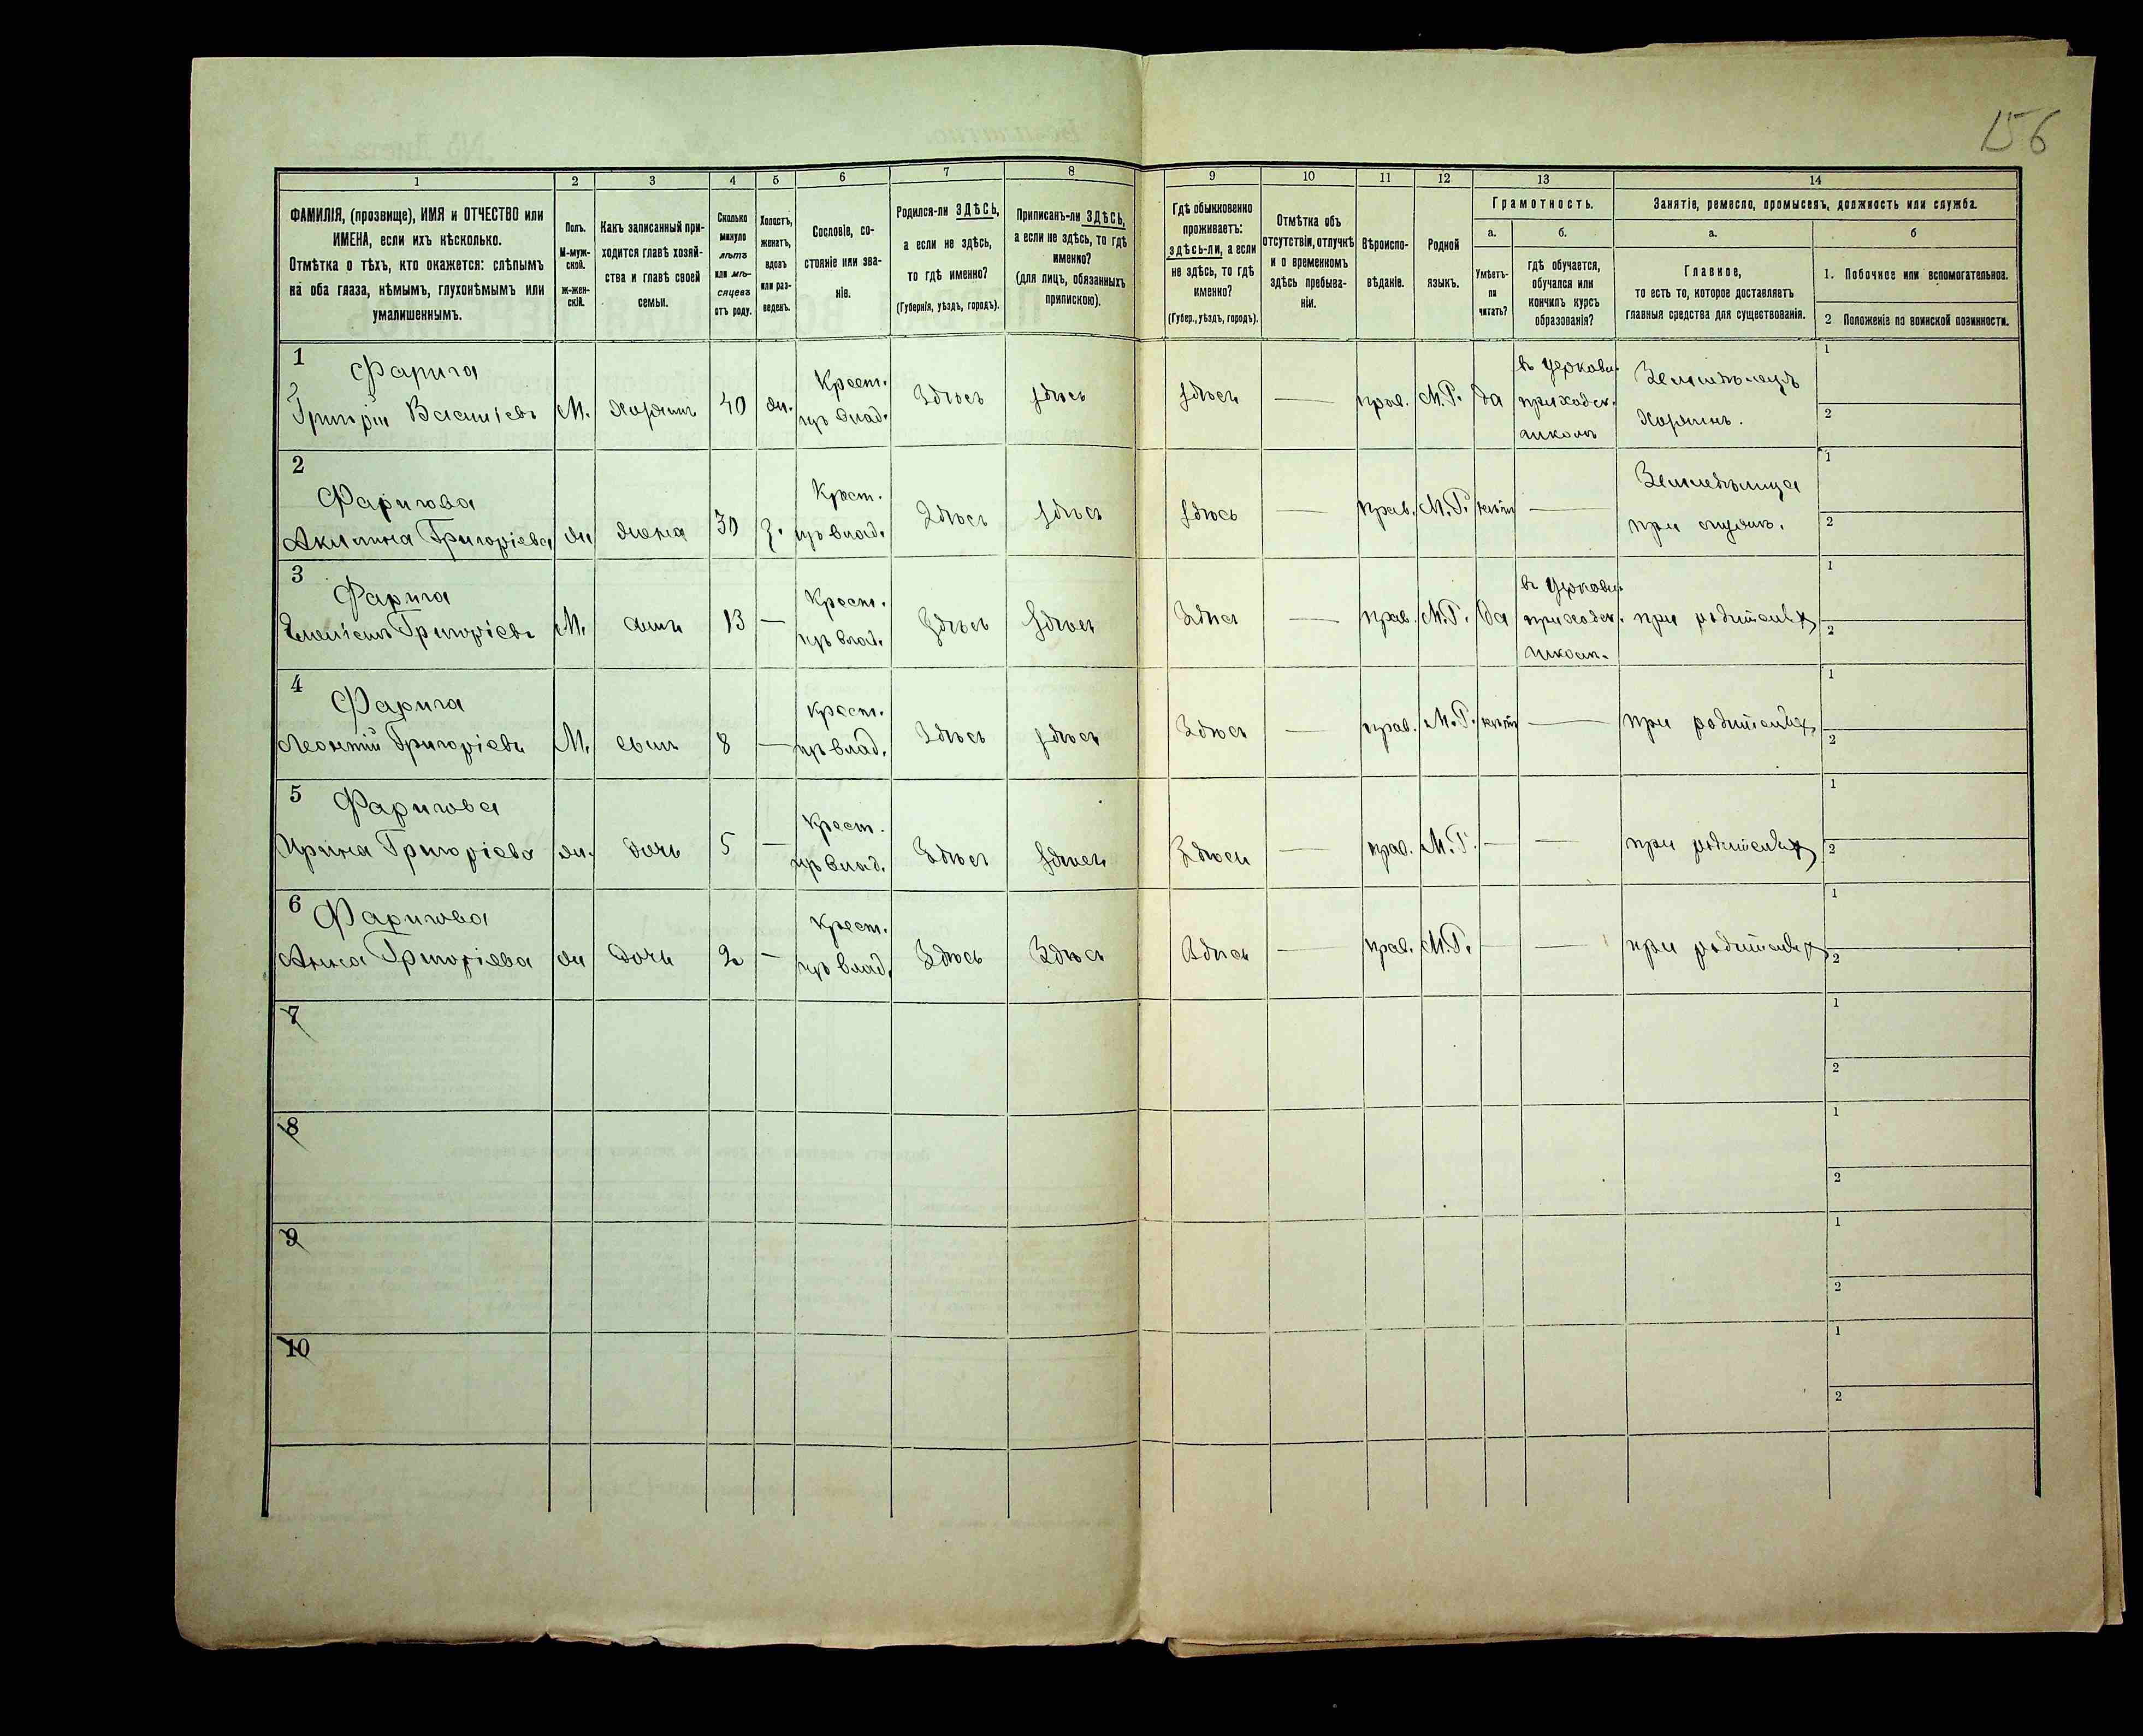 156
1 2 3 4 5 6 7 8 9 10 11 12 13 14
ФАМИЛІЯ, (прозвище), ИМЯ и ОТЧЕСТВО или
ИМЕНА, если ихъ нѣсколько.
Отмѣтка о тѣхъ, кто окажется: слѣпымъ
на оба глаза, нѣмымъ, глухонѣмымъ или
умалишеннымъ.
Полъ.
М-муж-
ской.
Ж-жен-
скій.
Какъ записанный при-
ходится главѣ хозяй-
ства и главѣ своей
семьи.
Сколько
минуло
лѣтъ
или мѣ-
сяцевъ
отъ роду.
Холостъ,
женатъ,
вдовъ
или раз-
веденъ.
Сословіе, со-
стояніе или зва-
ніе.
Родился-ли ЗДѢСЬ,
а если не здѣсь,
то гдѣ именно?
(Губернія, уѣздъ, городъ).
Приписанъ-ли ЗДѢСЬ,
а если не здѣсь, то гдѣ
именно?
(для лицъ, обязанныхъ
припискою).
Гдѣ обыкновенно
проживаетъ:
здѣсь-ли, а если
не здѣсь, то гдѣ
именно?
(Губер., уѣздъ, городъ).
Отмѣтка объ
отсутствіи, отлучкѣ
и о временномъ
здѣсь пребыва-
ніи.
Вѣроиспо-
вѣданіе.
Родной
языкъ.
Грамотность.
а.
Умѣетъ-
ли
читать?
б.
гдѣ обучается,
обучался или
кончилъ курсъ
образованія?
Занятіе, ремесло, промыселъ, должность или служба.
а.
Главное,
то есть то, которое доставляетъ
главныя средства для существованія.
б
1. Побочное или вспомогательное.
2 Положеніе по воинской повинности.
1 Фарига
Григорій Василіевъ М. Хозяинъ 40 ж. Крест. изъ влад. Здѣсь здѣсь здѣсь — прав. М.Р. да въ церковн. приходск. школѣ Земледѣлецъ Хозяинъ. 1 2
2 Фаригова
Акилина Григоріева ж жена 30 з. Крест. изъ влад. Здѣсь здѣсь здѣсь — прав. М.Р. нѣтъ — Земледѣлица при мужѣ. 1 2
3 Фарига
Григоріевъ М. сынъ 13 — Крест. изъ влад. Здѣсь здѣсь Здѣсь — прав. М.Р. да въ церковн. приходск. школѣ. при родителяхъ 1 2
4 Фарига
Леонтій Григоріевъ М. сынъ 8 — Крест. изъ влад. Здѣсь здѣсь Здѣсь — прав. М.Р. нѣтъ — при родителяхъ 1 2
5 Фаригова
Ирина Григоріева ж. дочь 5 — Крест. изъ влад. Здѣсь здѣсь Здѣсь — прав. М.Р. — — при родителяхъ 1 2
6 Фаригова
Анна Григоріева ж дочь 2 — Крест. изъ влад. Здѣсь Здѣсь Здѣсь — прав. М.Р. — — при родителяхъ 1 2
7 1 2
8 1 2
9 1 2
10 1 2